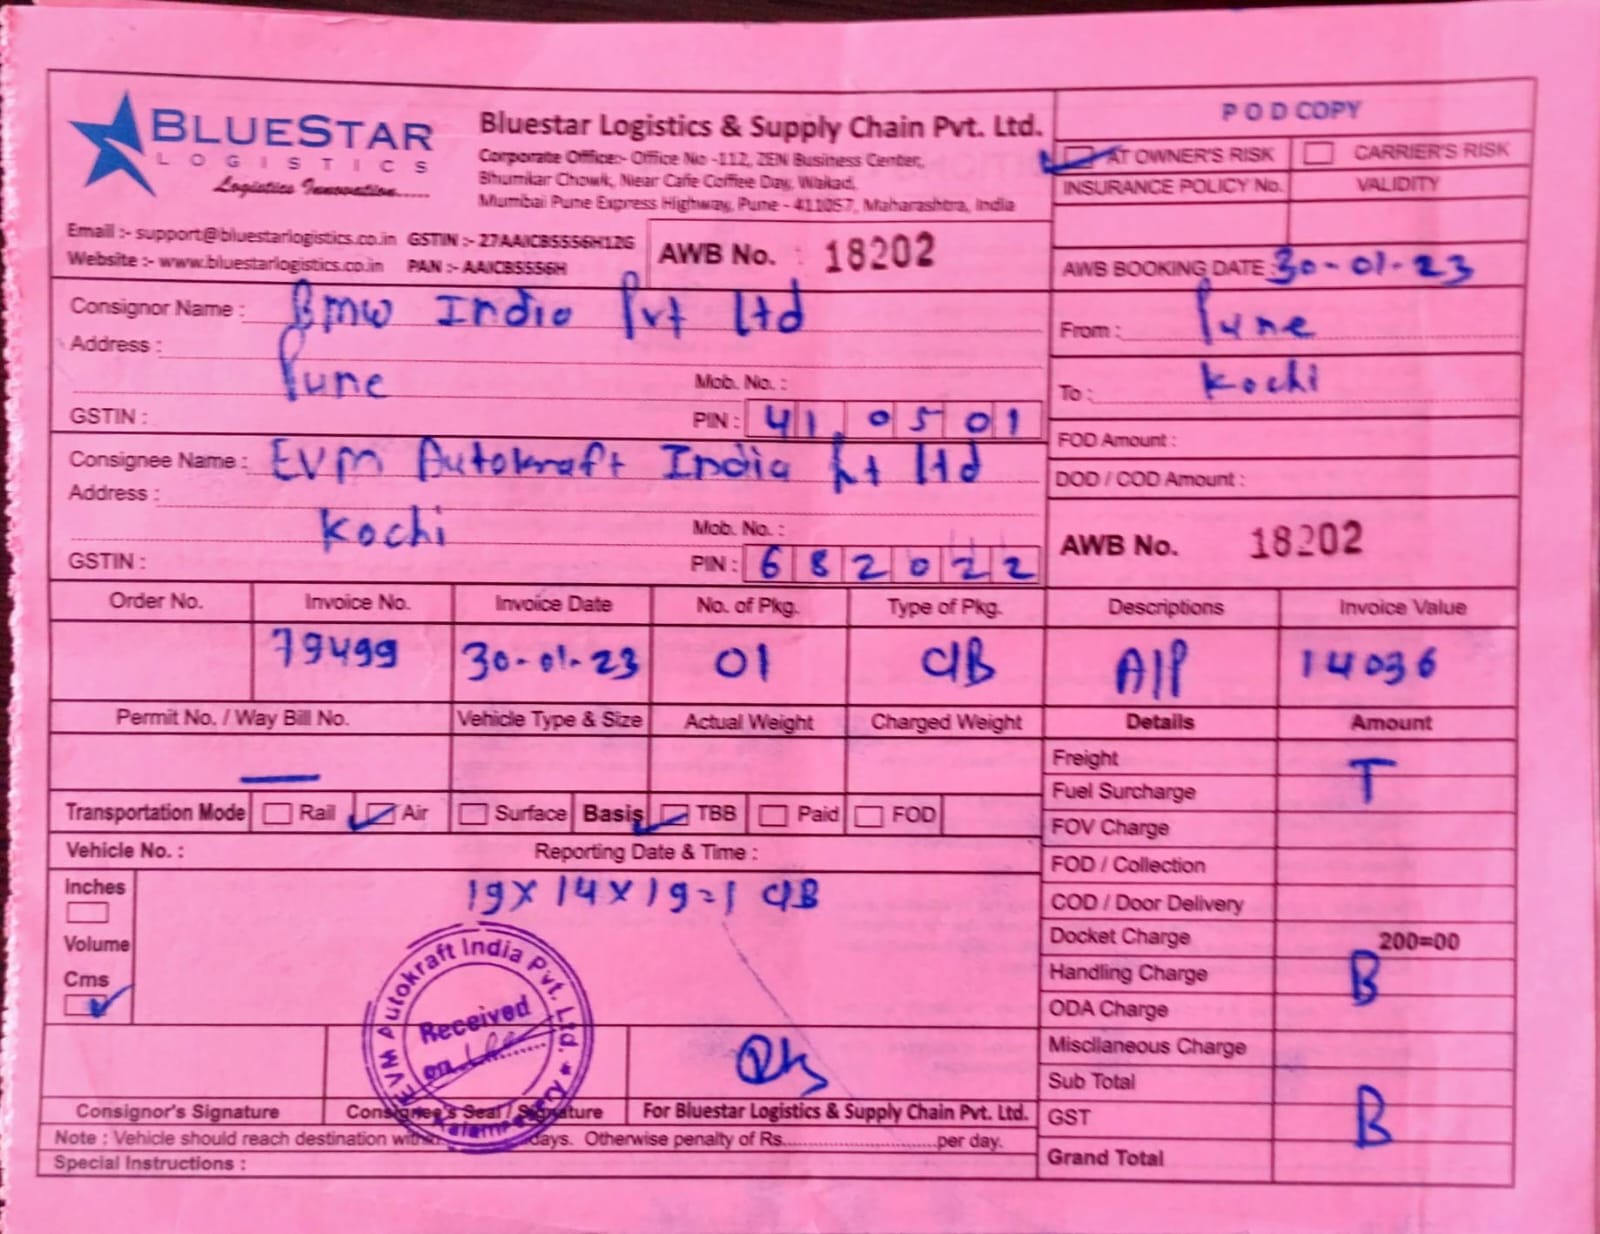 BLUESTAR
LOGISTICS
Logistics Innovation.....
Bluestar Logistics & Supply Chain Pvt. Ltd.
Corporate Office:- Office No -112, ZEN Business Center,
Bhumkar Chowk, Near Cafe Coffee Day, Wakad,
Mumbai Pune Express Highway, Pune - 411057, Maharashtra, India
Email :- support@bluestarlogistics.co.in GSTIN :- 27AAICB5556H1ZG
Website :- www.bluestarlogistics.co.in PAN :- AAICB5556H
AWB No. : 18202
P O D COPY
AT OWNER'S RISK CARRIER'S RISK
INSURANCE POLICY No. VALIDITY
AWB BOOKING DATE : 30-01-23
Consignor Name : BMW India Pvt Ltd
Address :
Pune Mob. No. :
GSTIN : PIN : 410501
From : Pune
To : Kochi
Consignee Name : EVM Autokraft India Pvt Ltd
Address :
Kochi Mob. No. :
GSTIN : PIN : 682022
FOD Amount :
DOD / COD Amount :
AWB No. 18202
Order No. Invoice No. Invoice Date No. of Pkg. Type of Pkg. Descriptions Invoice Value
79499 30-01-23 01 C/B A/P 14036
Permit No. / Way Bill No. Vehicle Type & Size Actual Weight Charged Weight Details Amount
Transportation Mode Rail Air Surface Basis TBB Paid FOD
Vehicle No. : Reporting Date & Time :
Inches
Volume
Cms
19 X 14 X 19 = 1 C/B
EVM Autokraft India Pvt. Ltd. ★
Received
on
Freight
T
Fuel Surcharge
FOV Charge
FOD / Collection
COD / Door Delivery
Docket Charge 200=00
Handling Charge B
ODA Charge
Miscllaneous Charge
Sub Total
GST B
Grand Total
Consignor's Signature Consignee's Seal / Signature For Bluestar Logistics & Supply Chain Pvt. Ltd.
Note : Vehicle should reach destination within days. Otherwise penalty of Rs..............................per day.
Special Instructions :